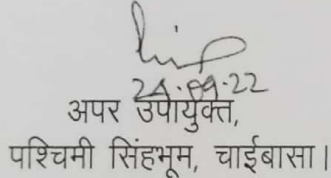 24.09.22
अपर उपायुक्त,
पश्चिमी सिंहभूम, चाईबासा।